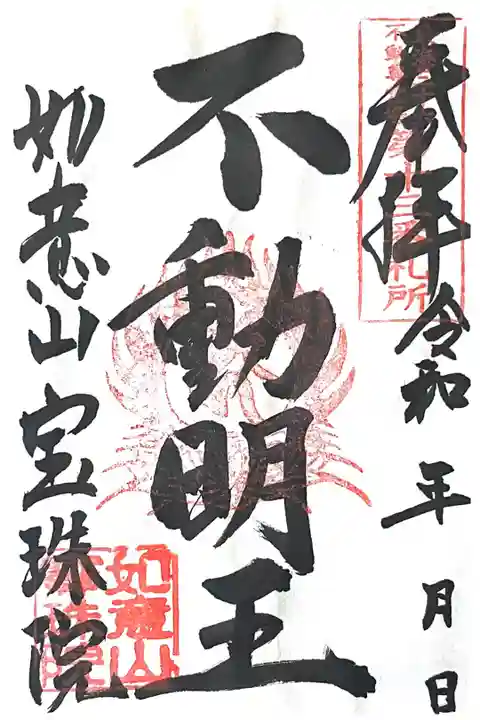 奉拝
令和 年 月 日
不動明王
如意山 宝珠院
十三番札所
如意山